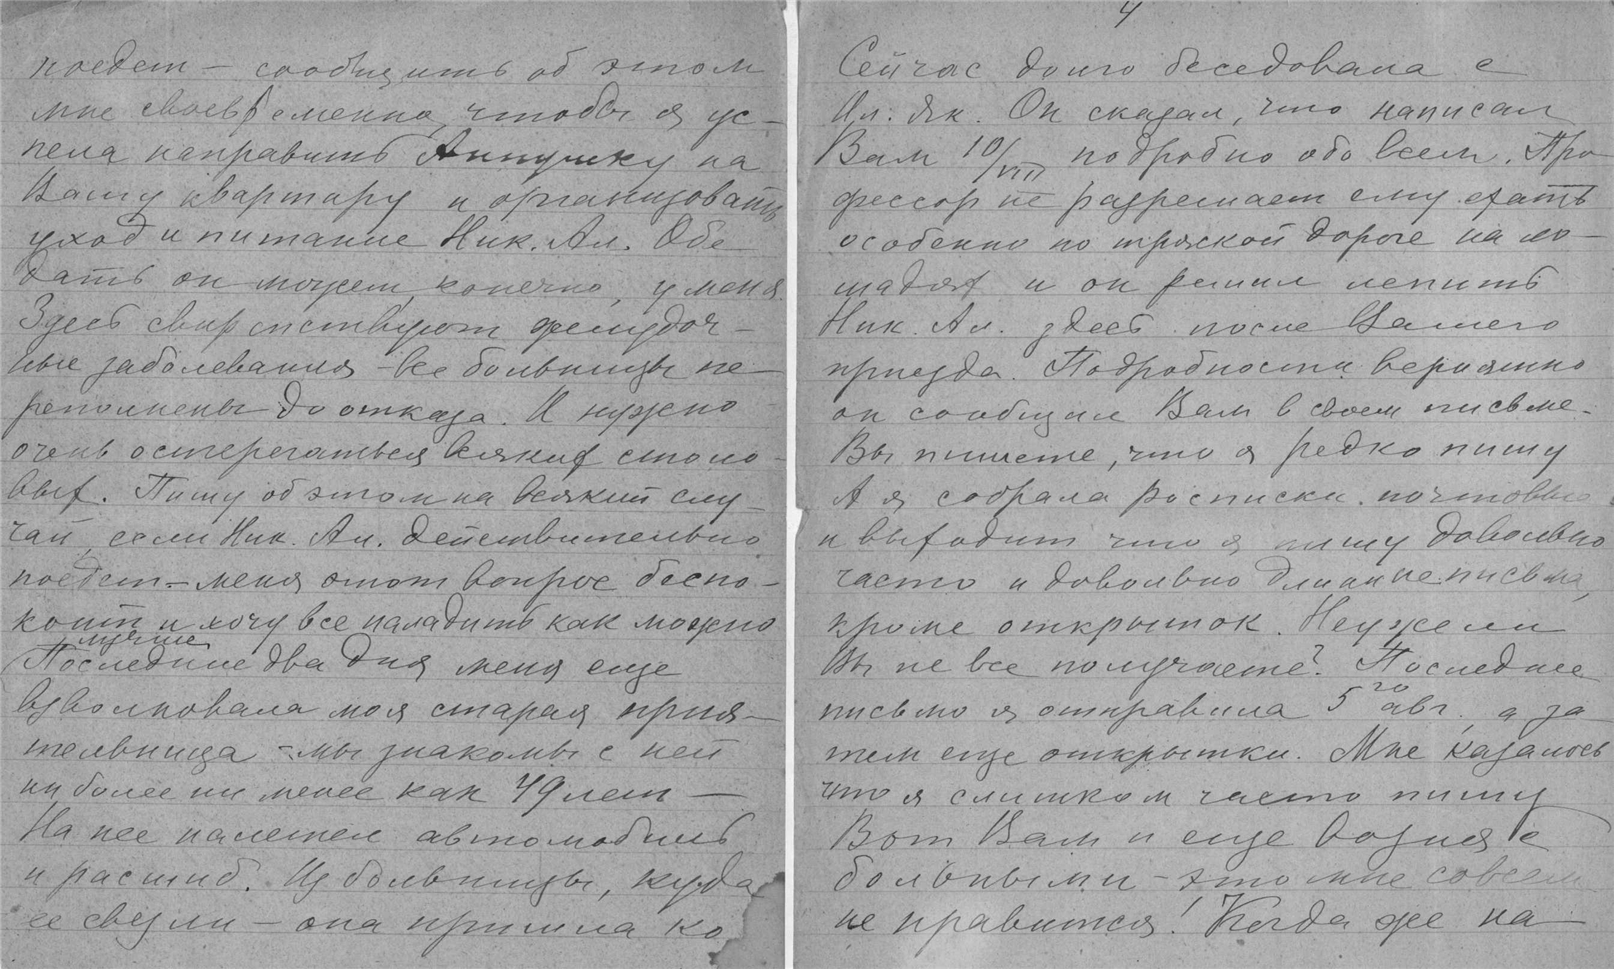 поедет — сообщить об этом
мне своевременно, чтобы я ус-
пела направить Аннушку на
Вашу квартиру и организовать
уход и питание Ник. Ал. Обе-
дать он может, конечно, у меня.
Здесь свирепствуют желудоч-
ные заболевания – все больницы пе-
реполнены до отказа. И нужно
очень остерегаться всяких столо-
вых. Пишу об этом на всякий слу-
чай, если Ник. Ал. действительно
поедет – меня этот вопрос беспо-
коит и хочу все наладить как можно
лучше
Последние два дня меня еще
взволновала моя старая прия-
тельница – мы знакомы с ней
ни более ни менее как 49 лет —
На нее налетел автомобиль
и расшиб. Из больницы, куда
ее свезли – она пришла ко
4
Сейчас долго беседовала с
Ил. Як. Он сказал, что написал
Вам 10/VIII подробно обо всем. Про-
фессор не разрешает ему ехать
особенно по тряской дороге на ло-
шадях и он решил лечить
Ник. Ал. здесь после Вашего
приезда. Подробности вероятно
он сообщил Вам в своем письме.
Вы пишете, что я редко пишу
А я собрала росписки почтовые
и выходит что я пишу довольно
часто и довольно длинные письма,
кроме открыток. Неужели
Вы не все получаете? Последнее
письмо я отправила 5го авг., а за-
тем еще открытки. Мне казалось
что я слишком часто пишу
Вот Вам и еще возня с
больными – это мне совсем
не нравится! Когда же на-